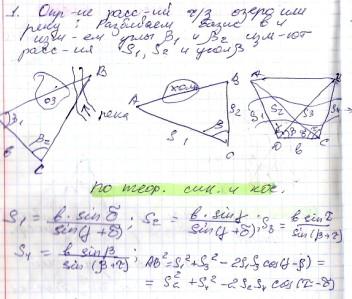 1. Опр-ие расс-ий ч/з озеро или
реку: Разбиваем базис b и
изм-ем углы β₁ и β₂ изм-ют
расс-ия S₁, S₂ и угол β
оз
B
β₁
β₂
b
C
река
A
холм
B
S₁
S₂
β
C
A
B
S₁
S₂
S₃
S₄
D
b
C
по теор. син. и кос.
S₁ = b·sin δ / sin(γ+δ); S₂ = b·sin γ / sin(γ+δ); S₃ = b sin τ / sin(β+τ)
S₄ = b sin β / sin(β+τ); AB² = S₁² + S₃² − 2S₁S₃ cos(γ−β) =
= S₂² + S₄² − 2S₂S₄ cos(τ−δ)